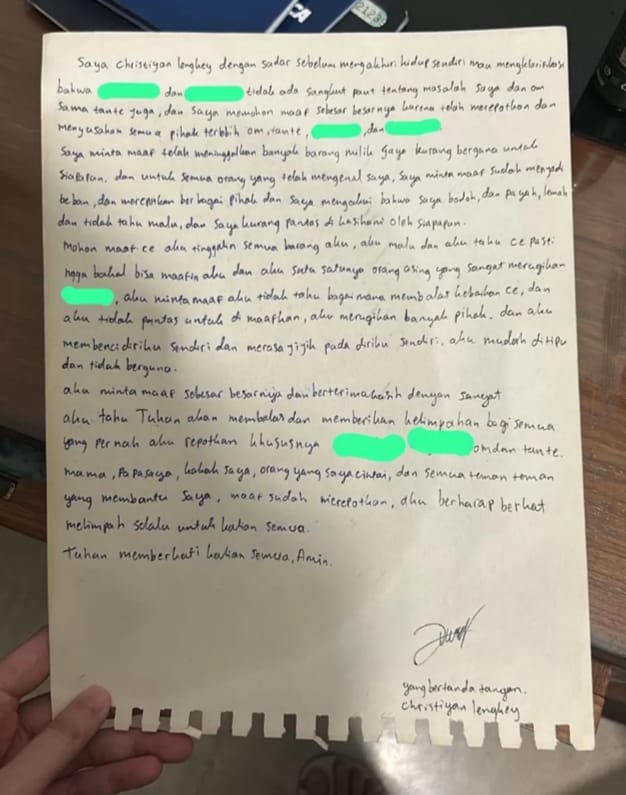 CA
2123
Saya Christiyan lengkey dengan sadar sebelum mengakhiri hidup sendiri mau mengklarifikasi
bahwa dan tidak ada sangkut paut tentang masalah saya dan om
sama tante juga, dan saya memohon maaf sebesar besarnya karena telah merepotkan dan
menyusahan semua pihak terlbih om, tante, , dan .
Saya minta maaf telah meninggalkan banyak barang milik saya kurang berguna untuk
siapapun. dan untuk semua orang yang telah mengenal saya, saya minta maaf sudah menjadi
beban, dan merepotkan berbagai pihak dan saya mengakui bahwa saya bodoh, dan payah, lemah
dan tidak tahu malu, dan saya kurang pantas di kasihani oleh siapapun.
Mohon maaf ce aku tinggalin semua barang aku, aku malu dan aku tahu ce pasti
ngga bakal bisa maafin aku dan aku satu satunya orang asing yang sangat merugikan
, aku minta maaf aku tidak tahu bagaimana membalas kebaikan ce, dan
aku tidak pantas untuk di maafkan, aku merugikan banyak pihak. dan aku
membenci diriku sendiri dan merasa jijik pada diriku sendiri. aku mudah ditipu
dan tidak berguna.
aku minta maaf sebesar besarnya dan berterimakasih dengan sangat
aku tahu Tuhan akan membalas dan memberikan kelimpahan bagi semua
yang pernah aku repotkan khususnya om dan tante.
mama, Papa saya, kakak saya, orang yang saya cintai, dan semua teman teman
yang membantu saya, maaf sudah merepotkan, aku berharap berkat
melimpah selalu untuk kalian semua.
Tuhan memberkati kalian semua, Amin.
yang bertanda tangan.
christiyan lengkey